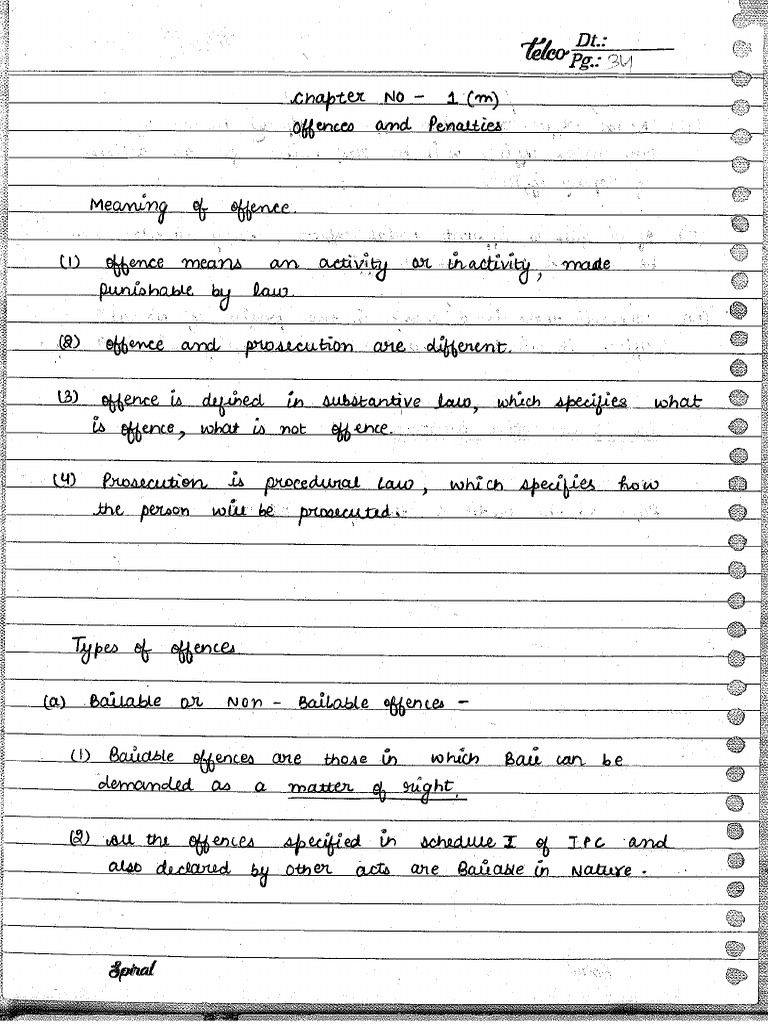 Telco Dt.:
Pg.: 34
Chapter No - 1 (m)
Offences and Penalties
Meaning of offence.
(1) offence means an activity or inactivity, made
punishable by law.
(2) offence and prosecution are different.
(3) offence is defined in substantive law, which specifies what
is offence, what is not offence.
(4) Prosecution is procedural law, which specifies how
the person will be prosecuted.
Types of offences
(a) Bailable or Non - Bailable offences -
(1) Bailable offences are those in which Bail can be
demanded as a matter of right.
(2) All the offences specified in schedule I of IPC and
also declared by other acts are Bailable in Nature.
Spiral